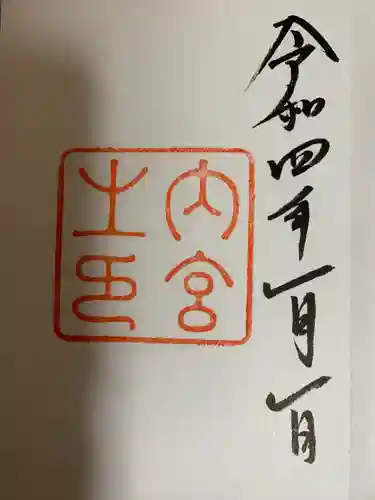 令和四年一月一日
内宮
之印